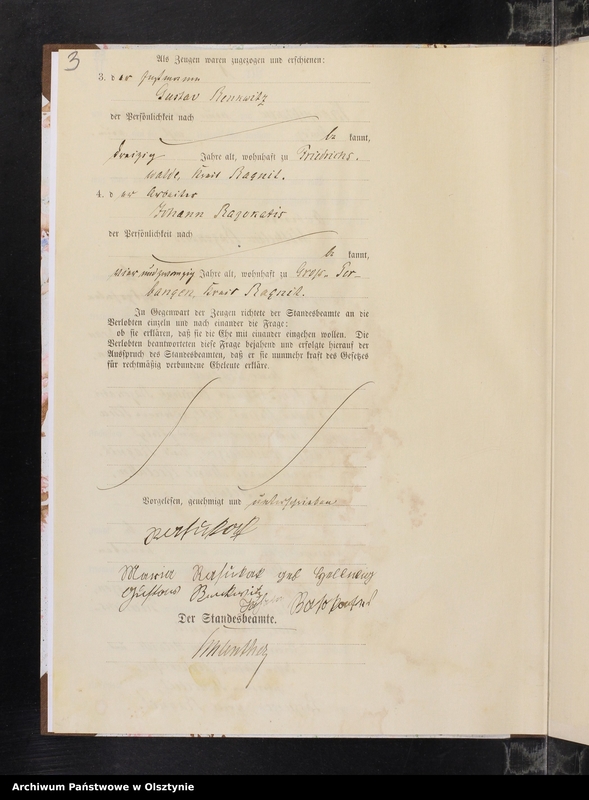 3
Als Zeugen waren zugezogen und erschienen:
3. der
Gustav Rennwitz
der Persönlichkeit nach
be kannt,
dreißig Jahre alt, wohnhaft zu Friedrichs-
walde, Kreis Ragnit.
4. der Arbeiter
Johann
der Persönlichkeit nach
be kannt,
vierundzwanzig Jahre alt, wohnhaft zu Groß-Per-
bangen, Kreis Ragnit.
In Gegenwart der Zeugen richtete der Standesbeamte an die
Verlobten einzeln und nach einander die Frage:
ob sie erklären, daß sie die Ehe mit einander eingehen wollen. Die
Verlobten beantworteten diese Frage bejahend und erfolgte hierauf der
Ausspruch des Standesbeamten, daß er sie nunmehr kraft des Gesetzes
für rechtmäßig verbundene Eheleute erkläre.
Vorgelesen, genehmigt und unterschrieben
Maria geb
Gustav
Johann
Der Standesbeamte.
Archiwum Państwowe w Olsztynie